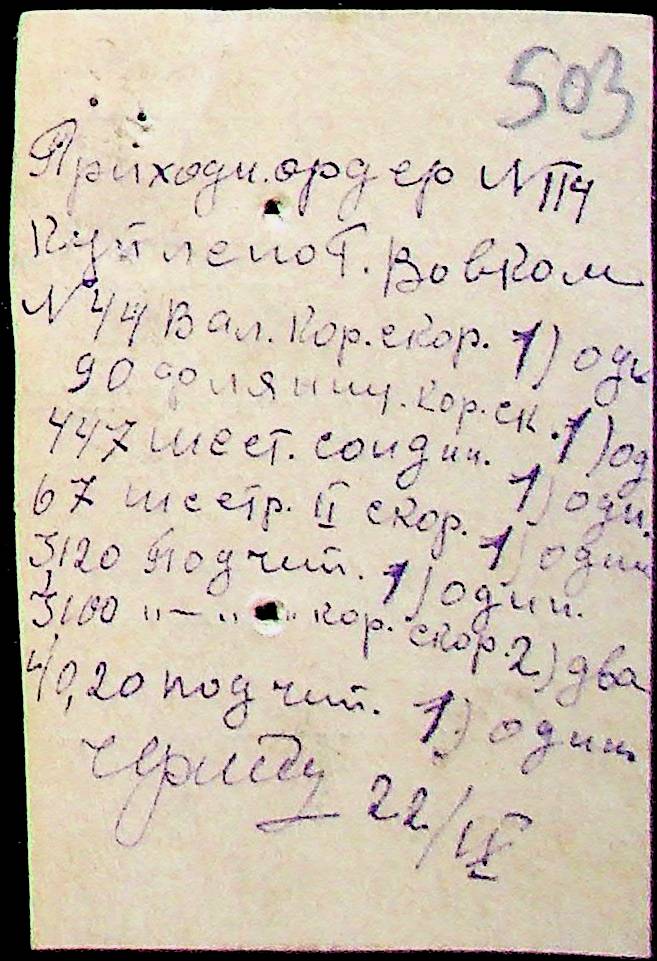 503
Приходн. ордер № 114
Куплено т. Вовком
№ 44 Вал. кор. скор. 1) оди
90 флянец. кор. ск. 1) од
447 шест. соидин. 1) оди.
67 шестр. II скор. 1) один
3,120 Подчип. 1) один.
3,100 "—" кор. скор. 2) два
40,20 подчип. 1) один
22/IV